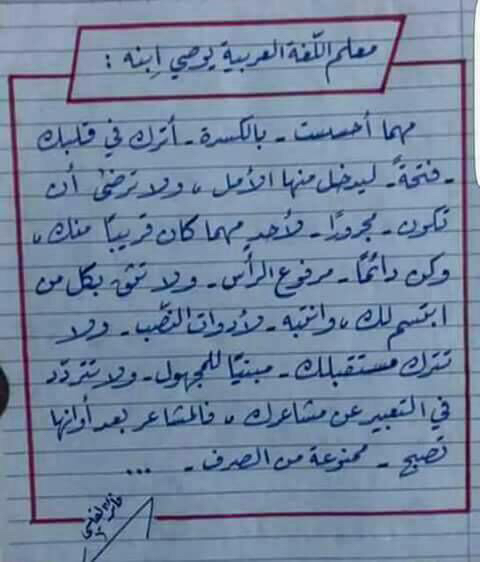 معلم اللّغة العربية يوصي اِبنه :
مهما أحسست - بالكسرة - أترك في قلبك
- فتحةً - ليدخل منها الأمل ، ولا ترضىٰ أن
تكون - مجرورًا - لأحدٍ مهما كان قريبًا منك ،
وكن دائمًا - مرفوع الرأس - ولا تثق بكل من
ابتسم لك ، وانتبه - لأدوات النّصب - ولا
تترك مستقبلك - مبنيًا للمجهول - ولا تتردّد
في التعبير عن مشاعرك ، فالمشاعر بعد أوانها
تصبح - ممنوعة من الصرف - ...